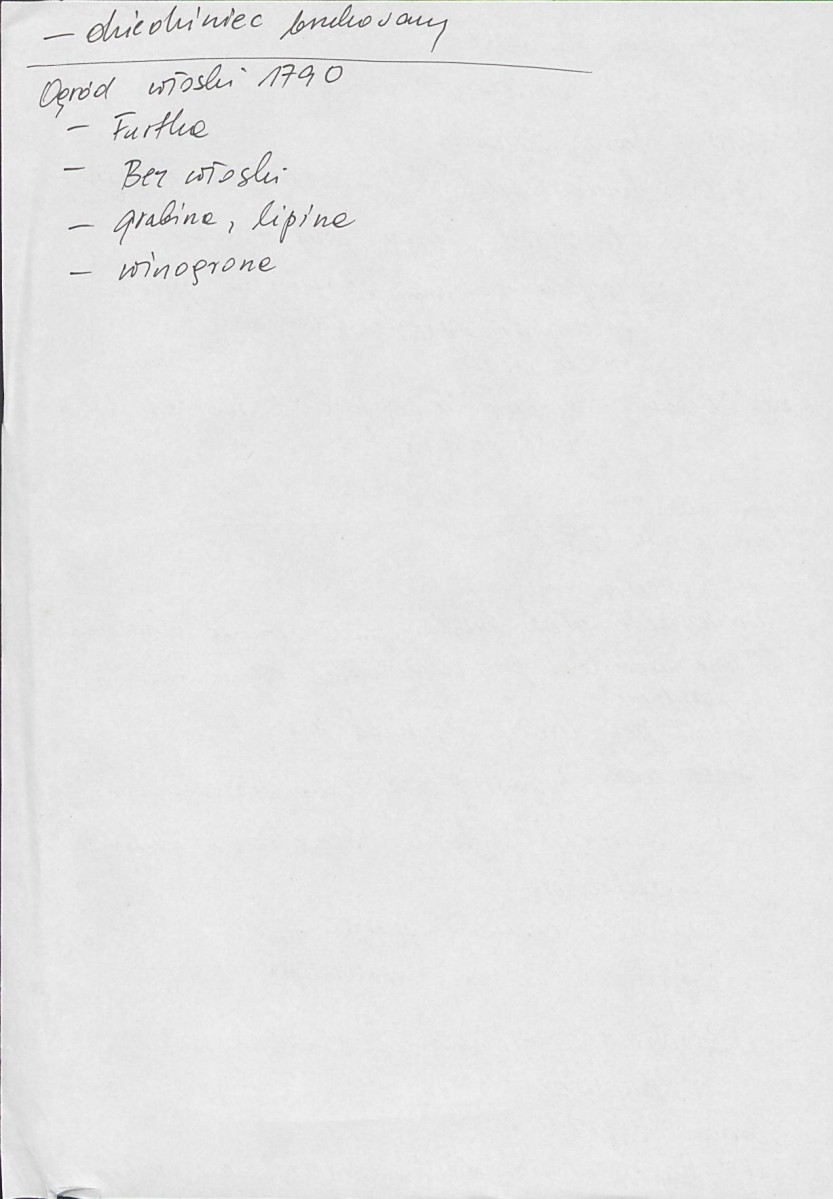 – dziedziniec brukowany
Ogród włoski 1790
– Furtka
– Bez włoski
– grabina, lipina
– winogrona